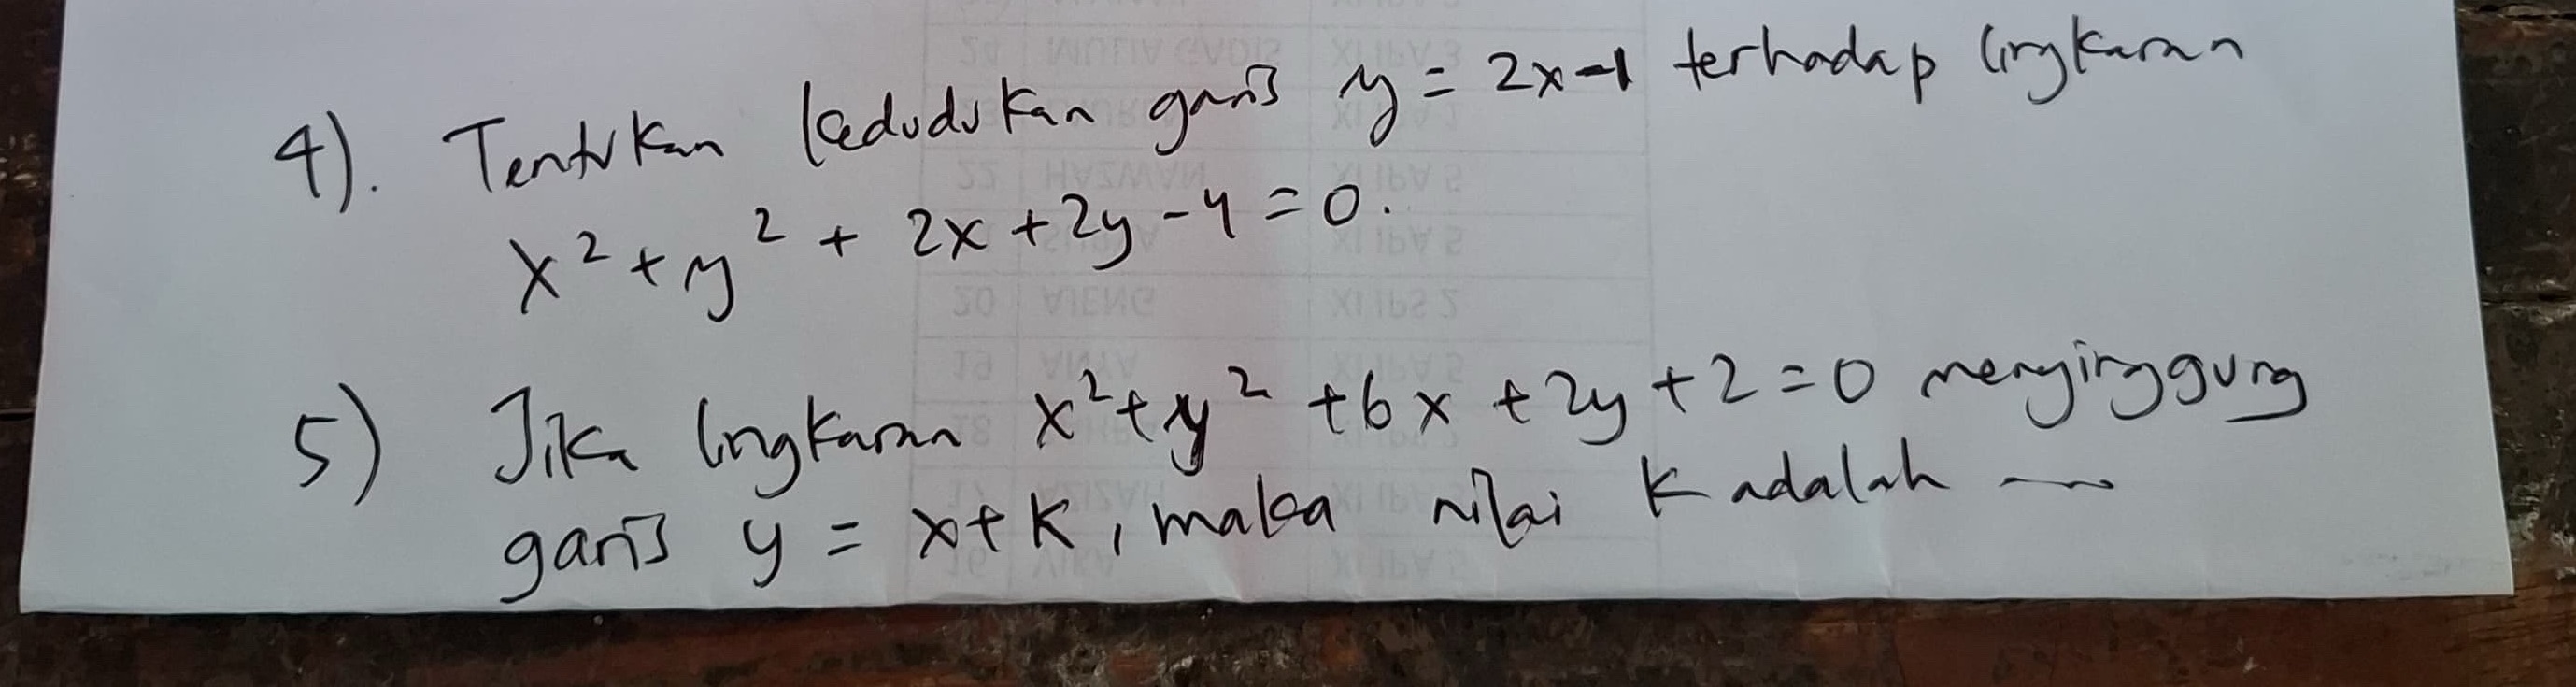 4). Tentukan kedudukan garis y = 2x-1 terhadap lingkaran
x² + y² + 2x + 2y - 4 = 0.
5) Jika lingkaran x² + y² + 6x + 2y + 2 = 0 menyinggung
garis y = x + k, maka nilai k adalah ...